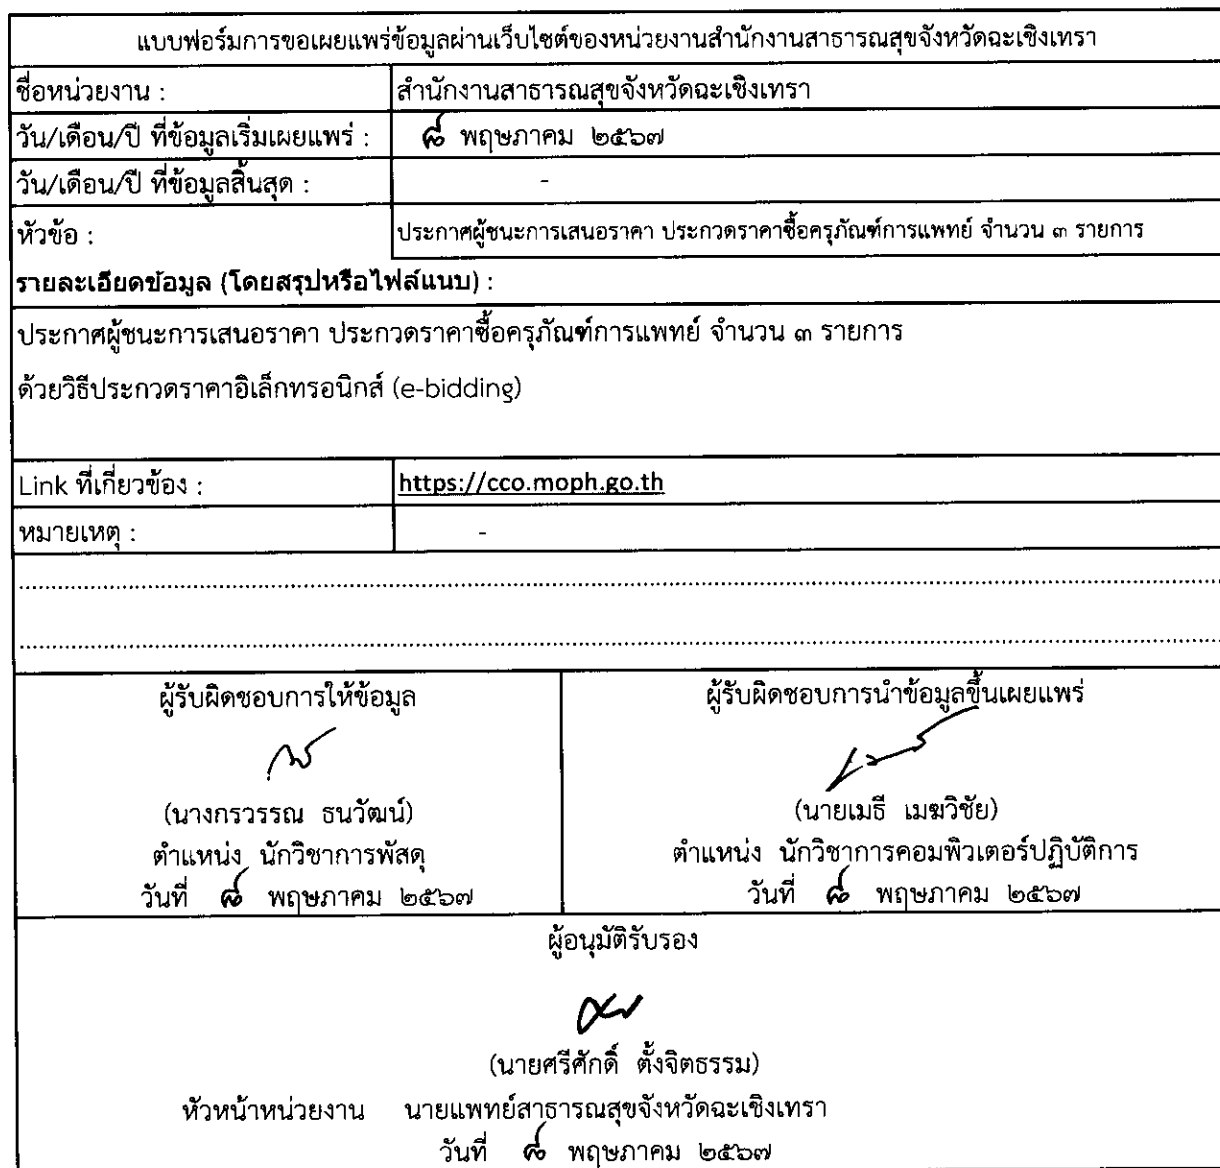 แบบฟอร์มการขอเผยแพร่ข้อมูลผ่านเว็บไซต์ของหน่วยงานสำนักงานสาธารณสุขจังหวัดฉะเชิงเทรา
ชื่อหน่วยงาน : สำนักงานสาธารณสุขจังหวัดฉะเชิงเทรา
วัน/เดือน/ปี ที่ข้อมูลเริ่มเผยแพร่ : ๘ พฤษภาคม ๒๕๖๗
วัน/เดือน/ปี ที่ข้อมูลสิ้นสุด : -
หัวข้อ : ประกาศผู้ชนะการเสนอราคา ประกวดราคาซื้อครุภัณฑ์การแพทย์ จำนวน ๓ รายการ
รายละเอียดข้อมูล (โดยสรุปหรือไฟล์แนบ) :
ประกาศผู้ชนะการเสนอราคา ประกวดราคาซื้อครุภัณฑ์การแพทย์ จำนวน ๓ รายการ
ด้วยวิธีประกวดราคาอิเล็กทรอนิกส์ (e-bidding)
Link ที่เกี่ยวข้อง : https://cco.moph.go.th
หมายเหตุ : -
ผู้รับผิดชอบการให้ข้อมูล
(นางกรวรรณ ธนวัฒน์)
ตำแหน่ง นักวิชาการพัสดุ
วันที่ ๘ พฤษภาคม ๒๕๖๗
ผู้รับผิดชอบการนำข้อมูลขึ้นเผยแพร่
(นายเมธี เมฆวิชัย)
ตำแหน่ง นักวิชาการคอมพิวเตอร์ปฏิบัติการ
วันที่ ๘ พฤษภาคม ๒๕๖๗
ผู้อนุมัติรับรอง
(นายศรีศักดิ์ ตั้งจิตธรรม)
หัวหน้าหน่วยงาน นายแพทย์สาธารณสุขจังหวัดฉะเชิงเทรา
วันที่ ๘ พฤษภาคม ๒๕๖๗